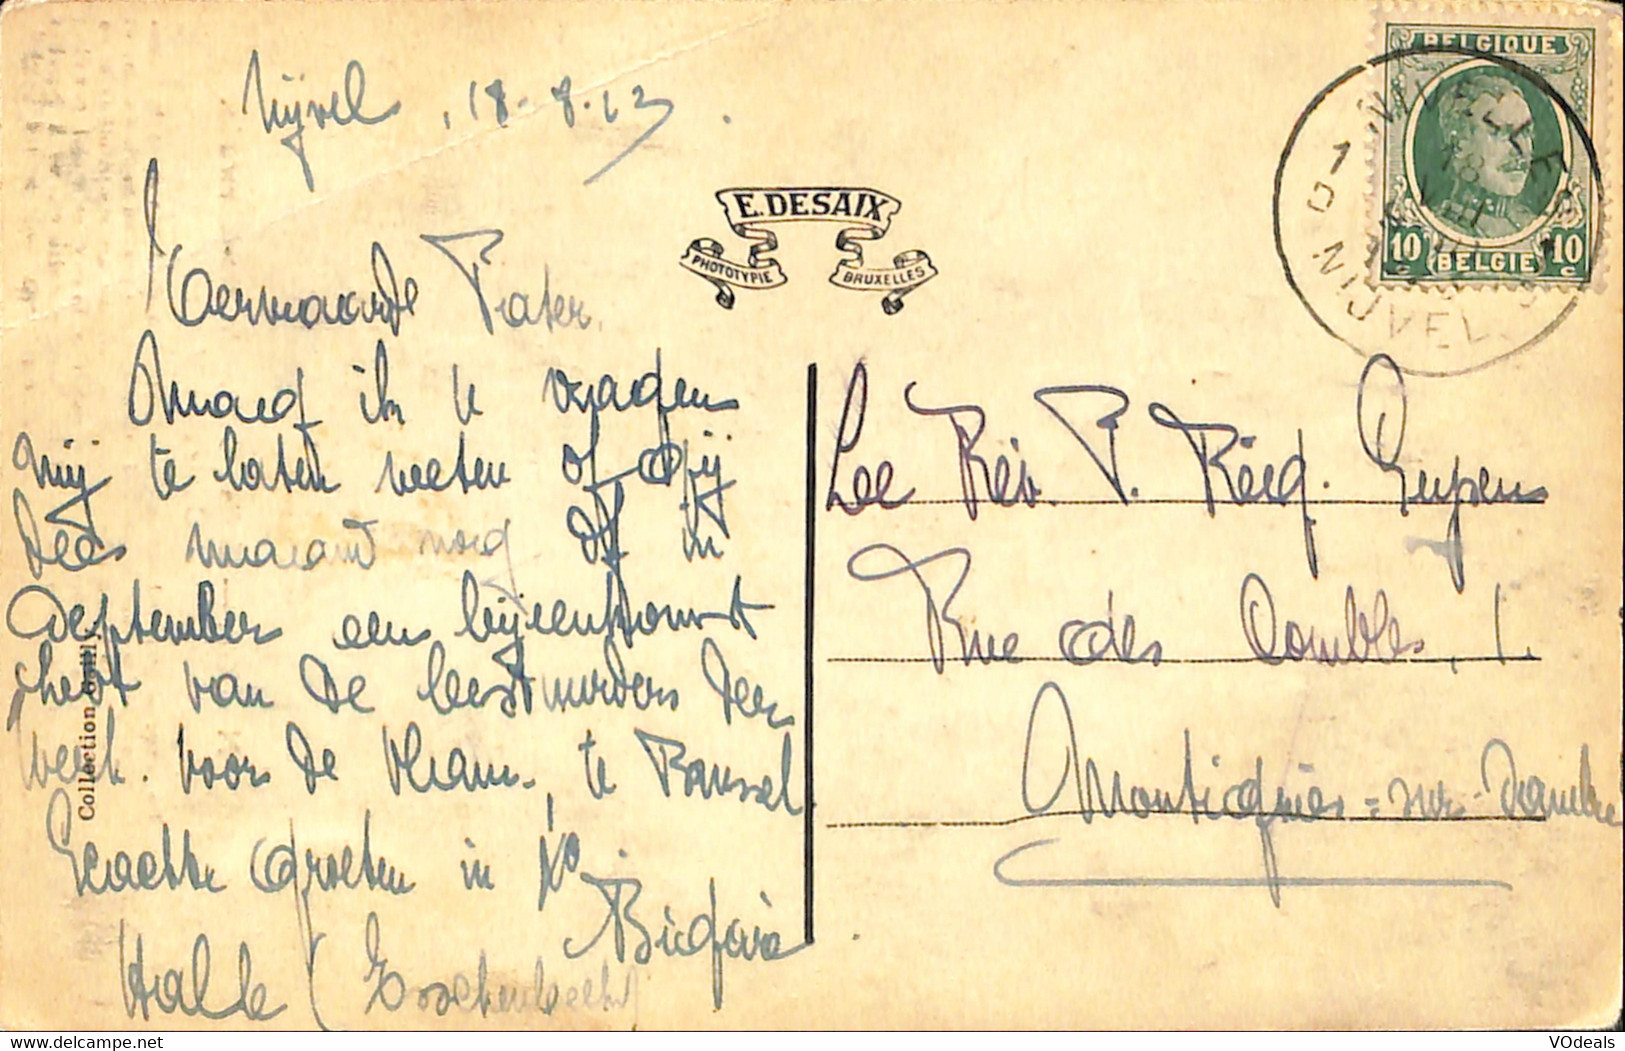 Nijvel, 18-8-23.
Eerwaarde Pater.
mag ik U vragen
mij te laten weten of gij
dees maand nog of in
September een bijeenkomst
hebt van de bestuurders der
werk. voor de Vlam. te Brussel.
Groeten in Xº.
Halle (Esschenbeek)
BELGIQUE
10 10
BELGIË
NIVELLES
18 VIII
NIJVEL
1 D
E. DESAIX
PHOTOTYPIE BRUXELLES
Le Rév. P. Réd. Guypens
Rue des Combles, 1.
Montignies-sur-Sambre
Collection
VOdeals.com
VOdeals